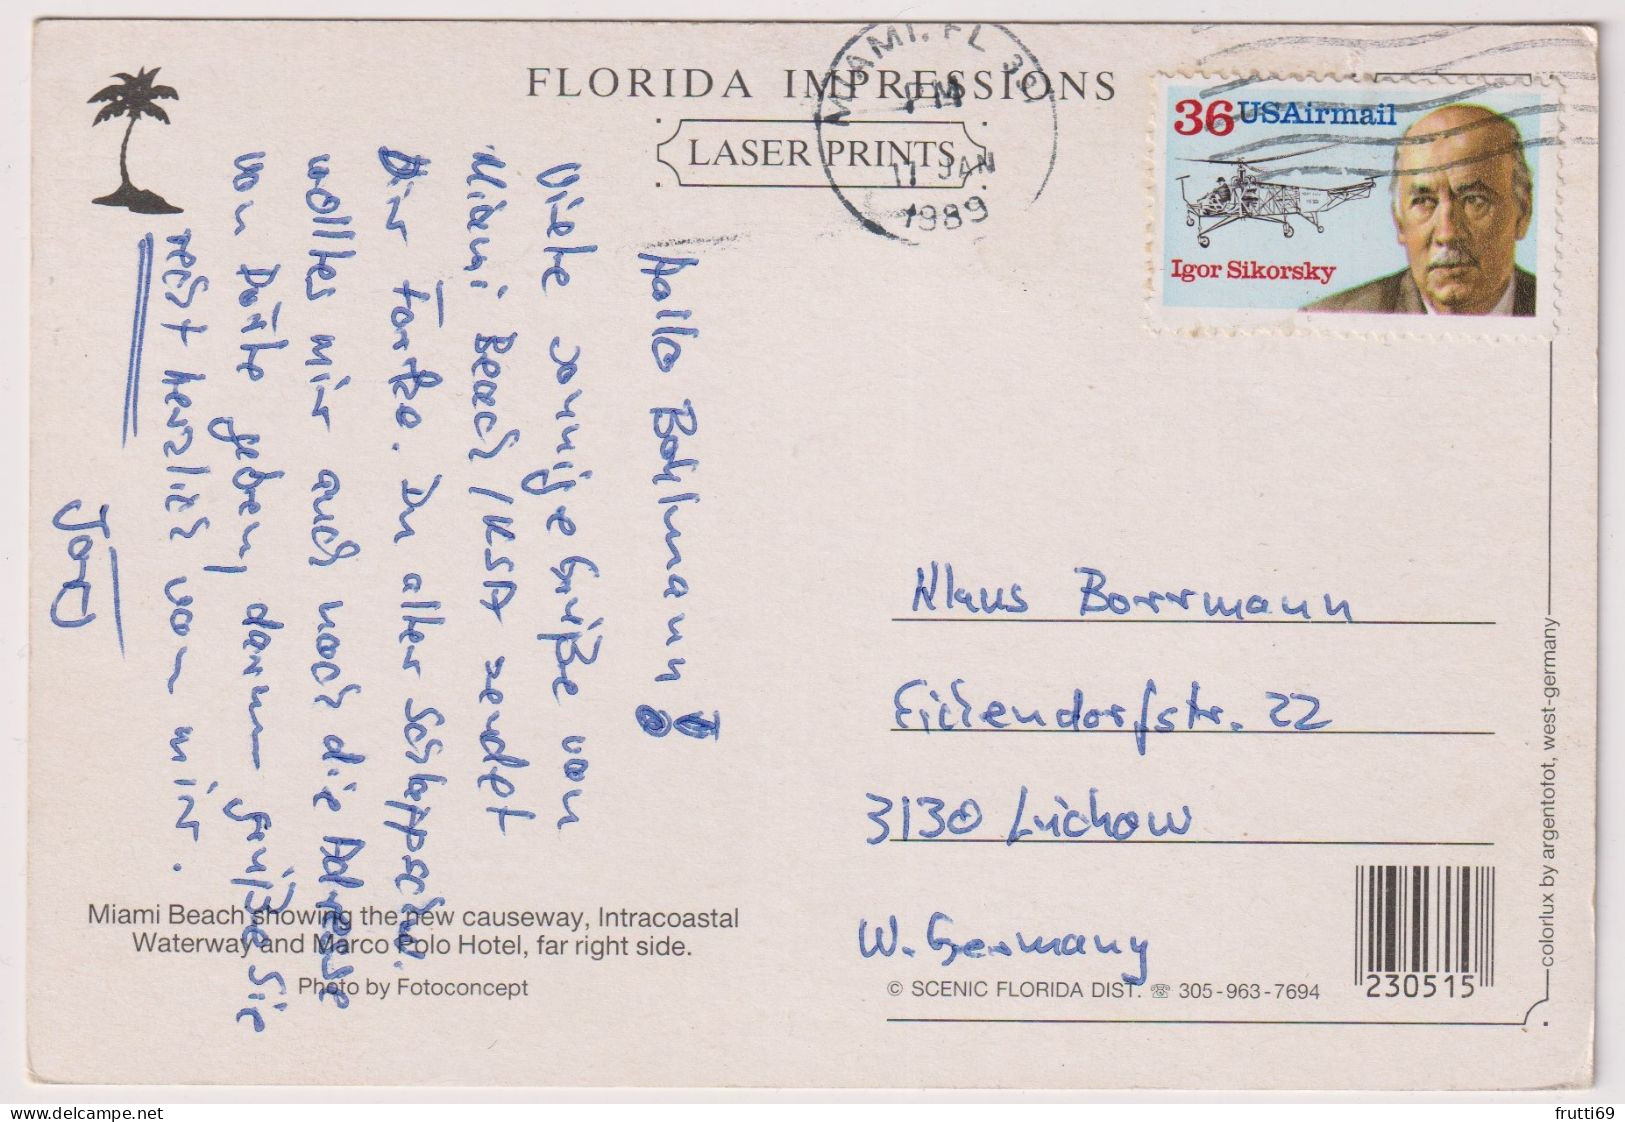 FLORIDA IMPRESSIONS
LASER PRINTS
MIAMI, FL
PM
17 JAN
1989
36 USAirmail
Igor Sikorsky
Hallo Bohlmann!
Viele sonnige Grüße von
Miami Beach/USA sendet
Dir
In aller
wolltes mir auch noch die Adresse
von Dörte geben, darum grüße Sie
recht herzlich von mir.
Klaus Borrmann
Eichendorfstr. 22
3130 Lüchow
W. Germany
Miami Beach showing the new causeway, Intracoastal
Waterway and Marco Polo Hotel, far right side.
Photo by Fotoconcept
© SCENIC FLORIDA DIST. ☏ 305-963-7694
230515
colorlux by argentofot, west-germany
www.delcampe.net
frutti69